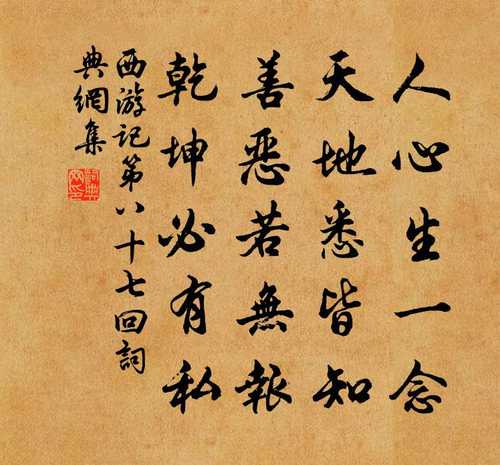 人心生一念
天地悉皆知
善惡若無報
乾坤必有私
西游记第八十七回詞
典網集